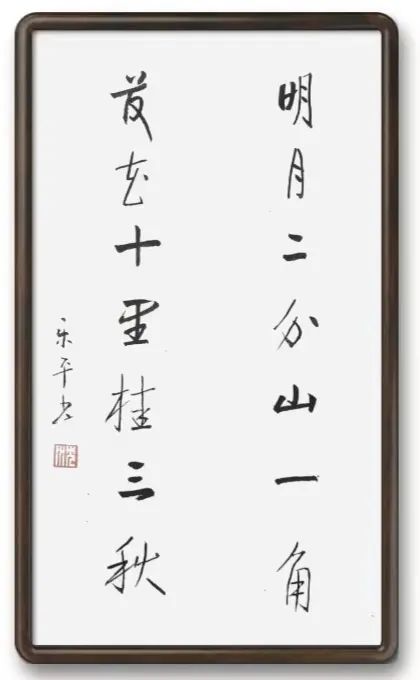 明月二分山一角
花十里桂三秋
乐平书